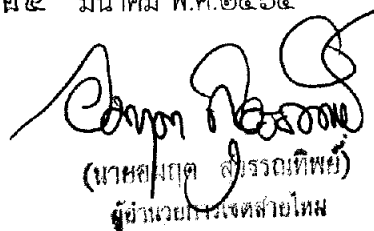 มีนาคม พ.ศ.๒๕๖๔
(นายอมฤต สุวรรณทิพย์)
ผู้อำนวยการเขตสายไหม